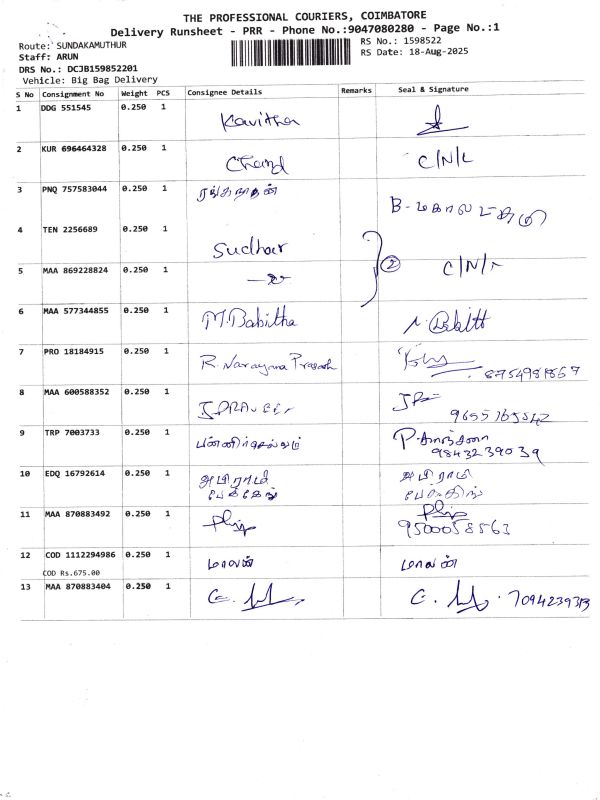 THE PROFESSIONAL COURIERS, COIMBATORE
Delivery Runsheet - PRR - Phone No.:9047080280 - Page No.:1
Route: SUNDAKAMUTHUR
RS No.: 1598522
Staff: ARUN
RS Date: 18-Aug-2025
DRS No.: DCJB159852201
Vehicle: Big Bag Delivery
S No Consignment No Weight PCS Consignee Details Remarks Seal & Signature
1 DDG 551545 0.250 1 Kavitha
2 KUR 696464328 0.250 1 Chand C/N/L
3 PNQ 757583044 0.250 1 ரங்கநாதன் B-
4 TEN 2256689 0.250 1 Sudhar
5 MAA 869228824 0.250 1 2 C/N/
6 MAA 577344855 0.250 1 M.Babitha
7 PRO 18184915 0.250 1 R. Narayana Prasash 8754981867
8 MAA 600588352 0.250 1
9655165542
9 TRP 7003733 0.250 1 பன்னிர்செல்வம்
9843239039
10 EDQ 16792614 0.250 1 அபிராமி அபிராமி
11 MAA 870883492 0.250 1 Philip Philip
9500058563
12 COD 1112294986 0.250 1 மாலன் மாலன்
COD Rs.675.00
13 MAA 870883404 0.250 1 7094239313